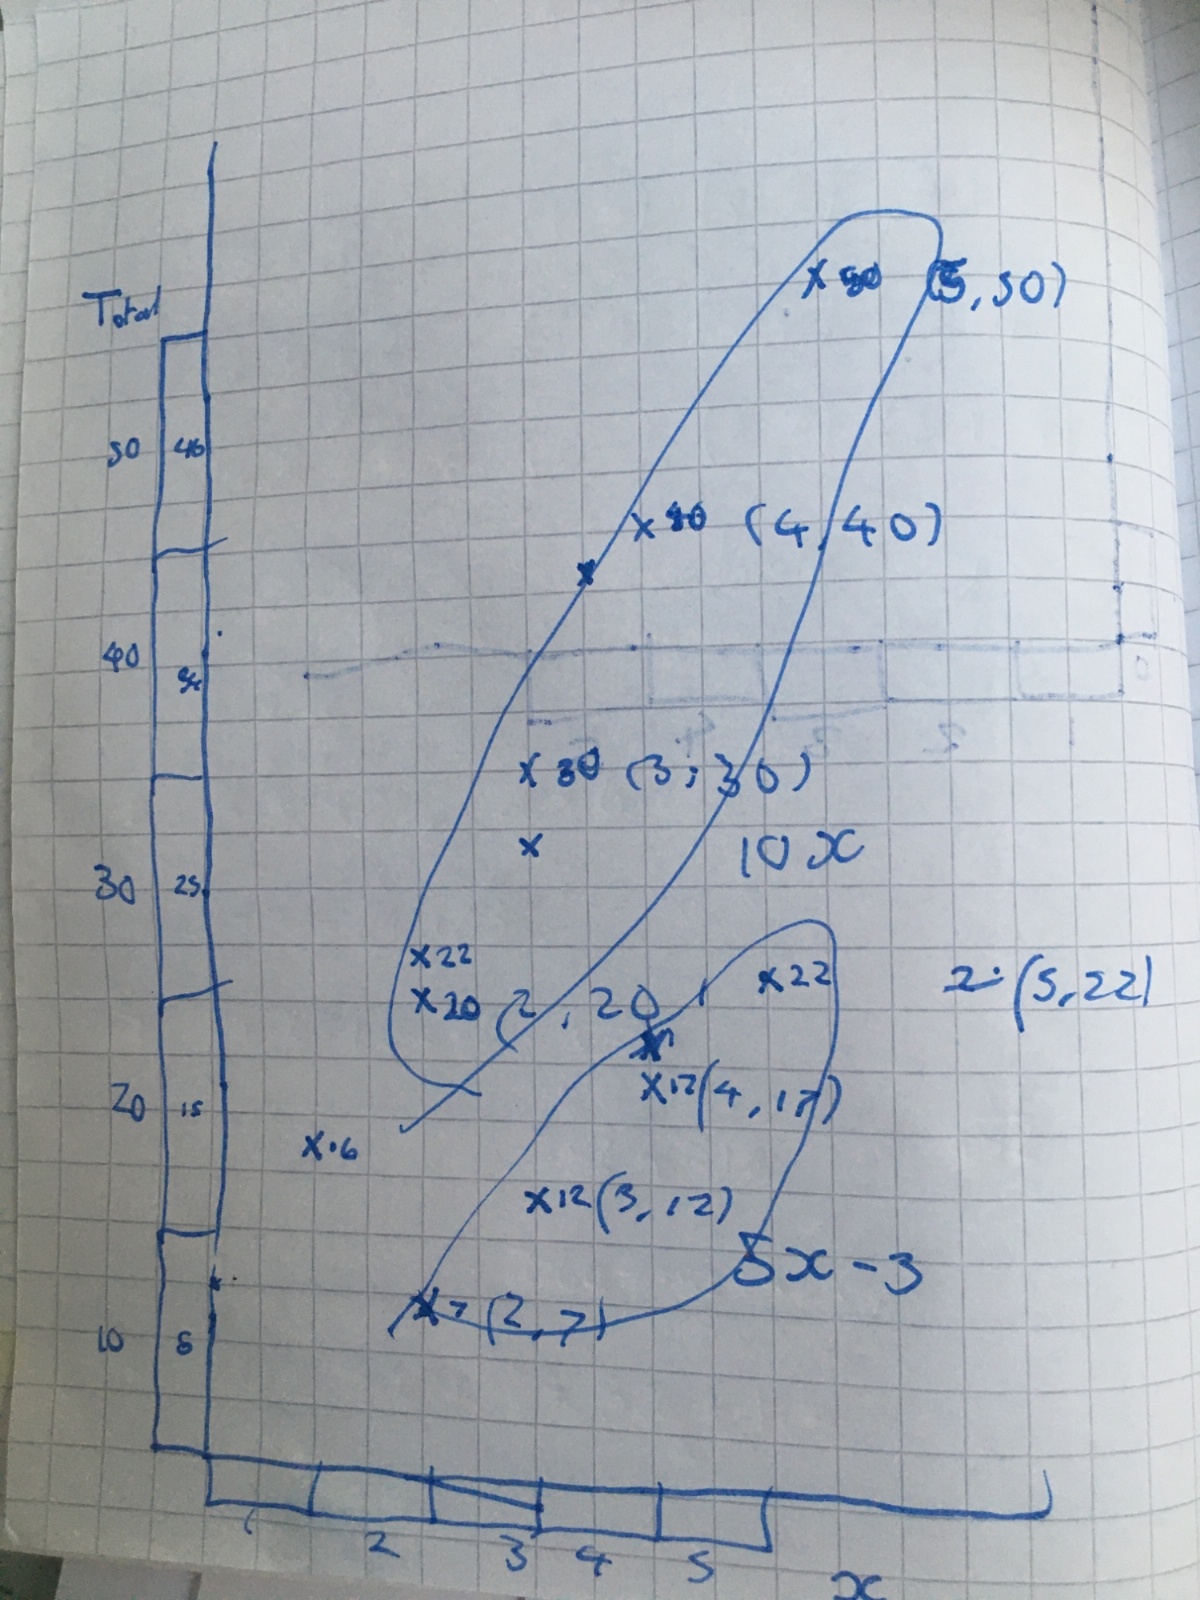 Total
x 50 (5,50)
50 46
x 40 (4,40)
40
x 30 (3,30)
10x
30 25
x22
x22
2 (5,22)
x20 (2,20)
x17 (4,17)
20 15
x 16
x12 (3,12)
5x-3
x7 (2,7)
10 5
1 2 3 4 5
x